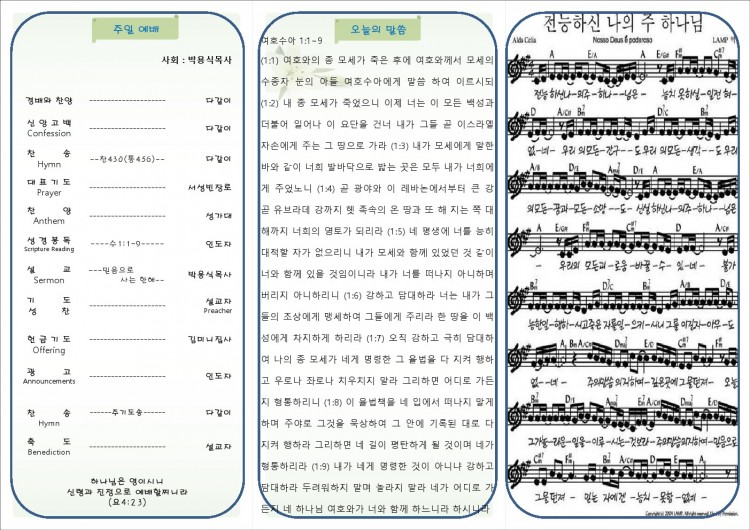 주일 예배
사회 : 박용식목사
경배와 찬양 ------------------ 다같이
신앙고백 ------------------ 다같이
Confession
찬 송 --찬430(통456)-- 다같이
Hymn
대표기도 ------------------ 서성빈장로
Prayer
찬 양 ------------------ 성가대
Anthem
성경봉독 ----수1:1-9----- 인도자
Scripture Reading
설 교 ---믿음으로 박용식목사
Sermon 사는 한해--
기 도 ------------------ 설교자
성 찬 Preacher
헌금기도 ------------------ 김미니집사
Offering
광 고 ------------------ 인도자
Announcements
찬 송 -----주기도송----- 다같이
Hymn
축 도 ------------------ 설교자
Benediction
하나님은 영이시니
신령과 진정으로 예배할찌니라
(요4:23)
오늘의 말씀
여호수아 1:1-9
(1:1) 여호와의 종 모세가 죽은 후에 여호와께서 모세의
수종자 눈의 아들 여호수아에게 말씀 하여 이르시되
(1:2) 내 종 모세가 죽었으니 이제 너는 이 모든 백성과
더불어 일어나 이 요단을 건너 내가 그들 곧 이스라엘
자손에게 주는 그 땅으로 가라 (1:3) 내가 모세에게 말한
바와 같이 너희 발바닥으로 밟는 곳은 모두 내가 너희에
게 주었노니 (1:4) 곧 광야와 이 레바논에서부터 큰 강
곧 유브라데 강까지 헷 족속의 온 땅과 또 해 지는 쪽 대
해까지 너희의 영토가 되리라 (1:5) 네 평생에 너를 능히
대적할 자가 없으리니 내가 모세와 함께 있었던 것 같이
너와 함께 있을 것임이니라 내가 너를 떠나지 아니하며
버리지 아니하리니 (1:6) 강하고 담대하라 너는 내가 그
들의 조상에게 맹세하여 그들에게 주리라 한 땅을 이 백
성에게 차지하게 하리라 (1:7) 오직 강하고 극히 담대하
여 나의 종 모세가 네게 명령한 그 율법을 다 지켜 행하
고 우로나 좌로나 치우치지 말라 그리하면 어디로 가든
지 형통하리니 (1:8) 이 율법책을 네 입에서 떠나지 말게
하며 주야로 그것을 묵상하여 그 안에 기록된 대로 다
지켜 행하라 그리하면 네 길이 평탄하게 될 것이며 네가
형통하리라 (1:9) 내가 네게 명령한 것이 아니냐 강하고
담대하라 두려워하지 말며 놀라지 말라 네가 어디로 가
든지 네 하나님 여호와가 너와 함께 하느니라 하시니라
전능하신 나의 주 하나님
Alda Célia Nosso Deus é poderoso LAMP 역
전능하신나-의주-하나--님은- 능치 못하실-일전 혀-
없-네- 우리 의모든-간구--도우리 의모든-생각--도 우리
의모든-꿈과-모든-소망--도- 신실 하신나-의주-하나--님은
- 우리의 모든괴-로움-바꿀-수-있-네- 불가
능한일-행하-시고죽은 자를일-으키-시니 그를 이길자-아무-도
없--네- 주의말씀 의지하여-깊은곳에 그물던져- 오늘